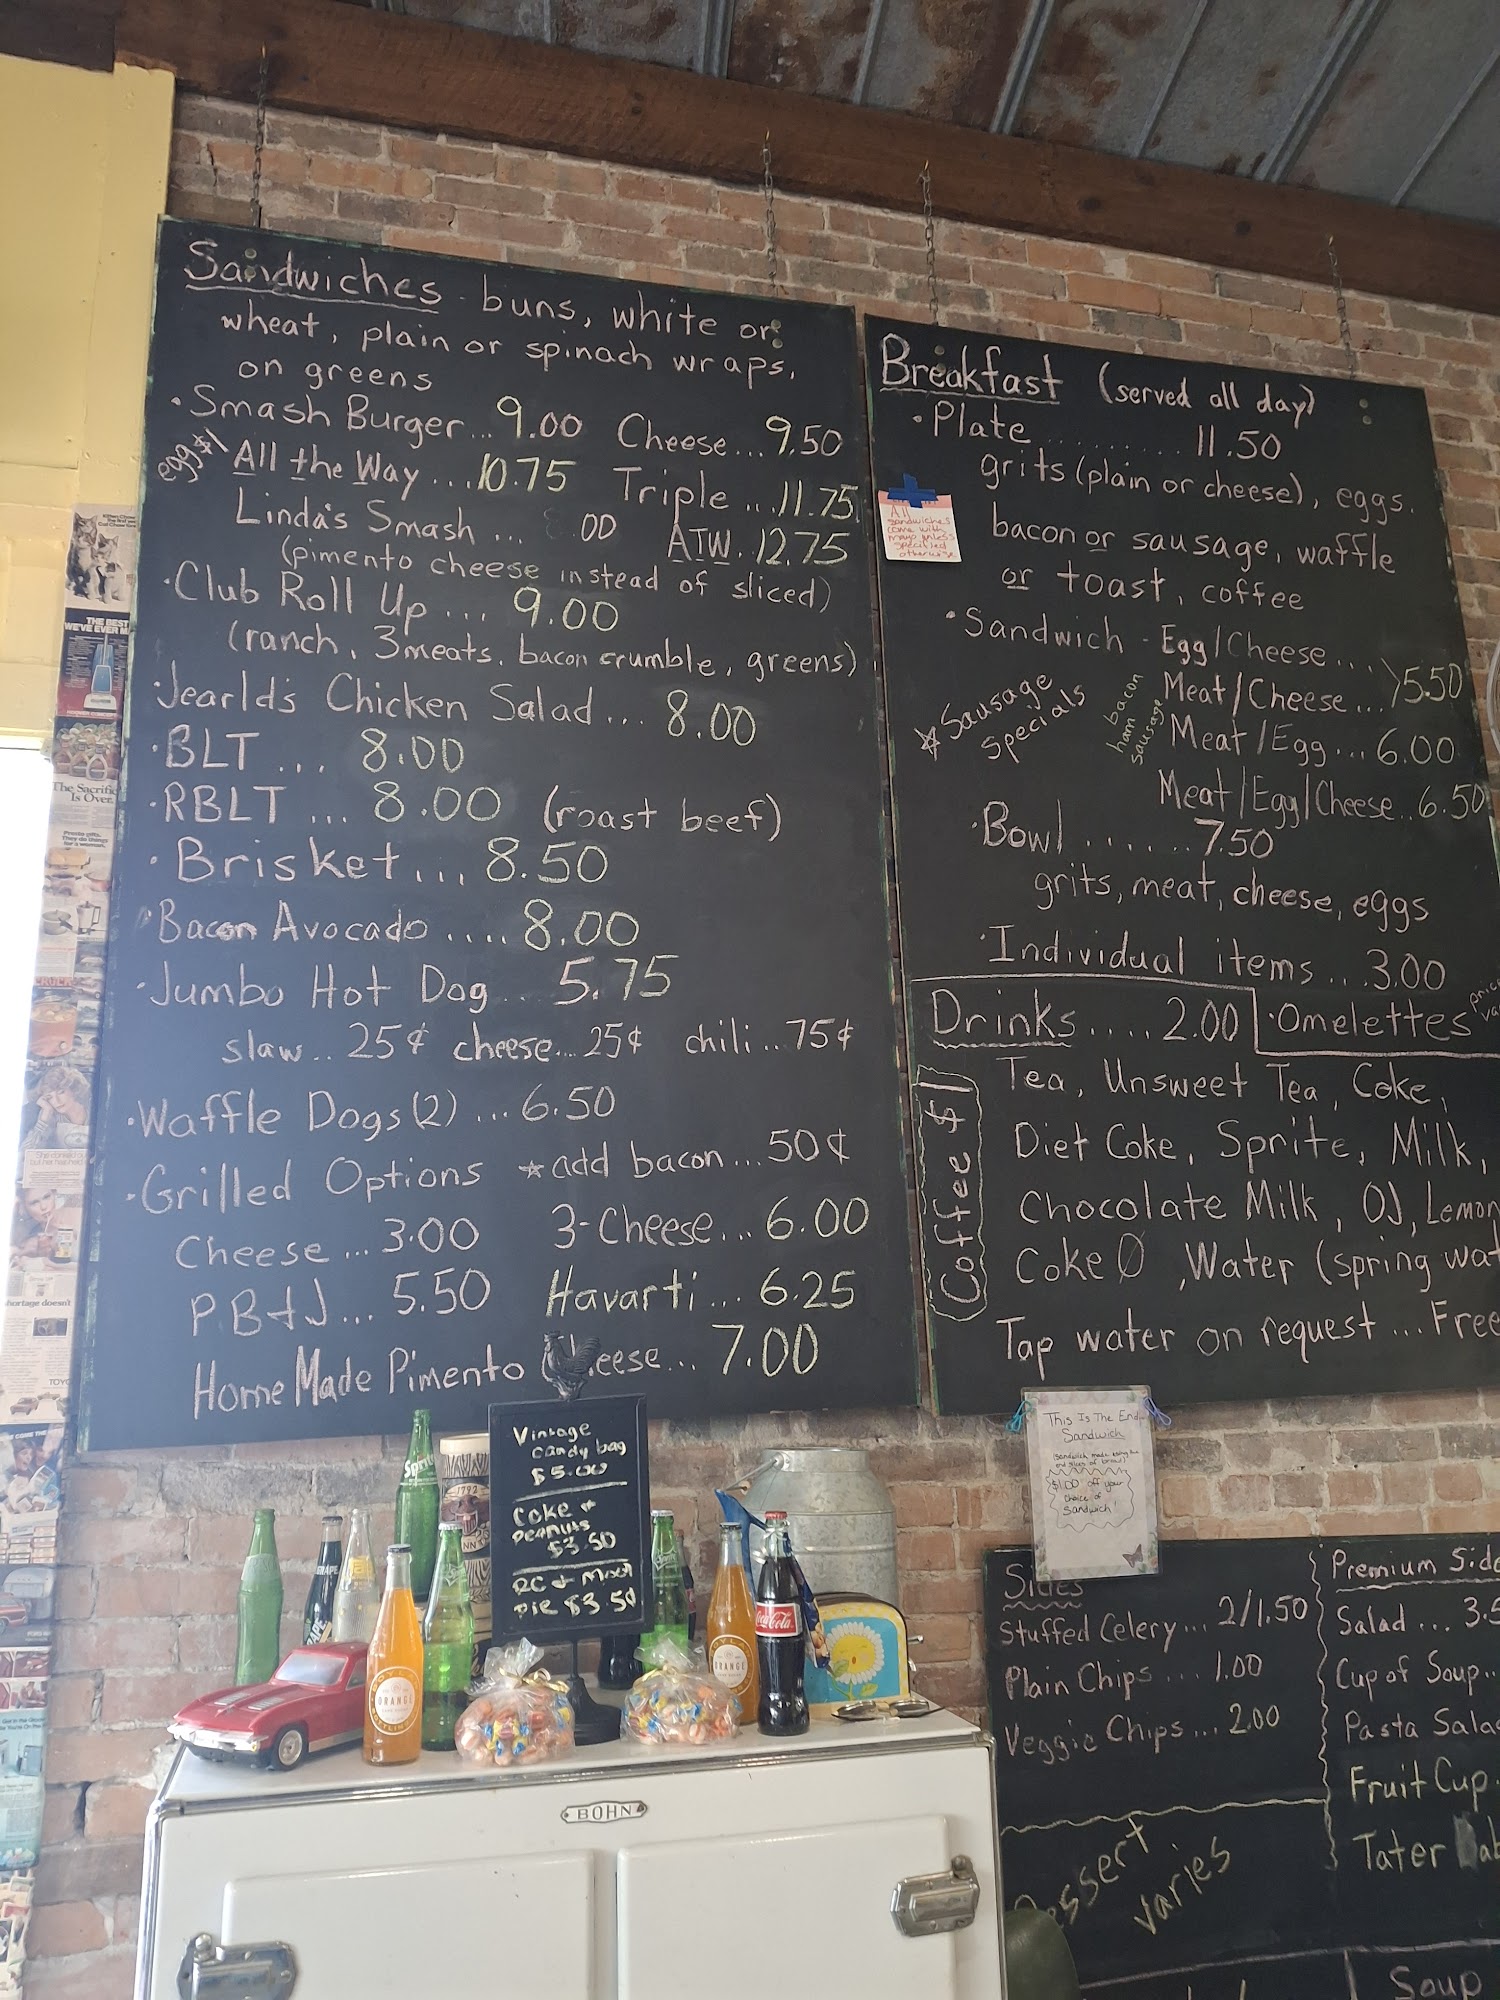 Sandwiches - buns, white or
wheat, plain or spinach wraps,
on greens
• Smash Burger... 9.00 Cheese... 9.50
egg $1
All the Way ...10.75 Triple ...11.75
Linda's Smash ... 00 ATW..12.75
(pimento cheese instead of sliced)
• Club Roll Up ... 9.00
(ranch, 3 meats, bacon crumble, greens)
• Jearld's Chicken Salad... 8.00
• BLT ... 8.00
• RBLT ... 8.00 (roast beef)
• Brisket... 8.50
• Bacon Avocado .... 8.00
• Jumbo Hot Dog... 5.75
slaw.. 25¢ cheese... 25¢ chili.. 75¢
• Waffle Dogs (2) ...6.50
• Grilled Options ☆ add bacon...50¢
Cheese ...3.00 3-Cheese... 6.00
PB+J... 5.50 Havarti... 6.25
Home Made Pimento Cheese... 7.00
Breakfast (served all day)
• Plate ......... 11.50
grits (plain or cheese), eggs,
bacon or sausage, waffle
or toast, coffee
All
sandwiches
come with
mayo unless
specified
otherwise
• Sandwich - Egg/Cheese.... >5.50
Meat/Cheese...
Meat/Egg...6.00
Meat/Egg/Cheese..6.50
bacon
ham
sausage
☆ Sausage
Specials
• Bowl .......7.50
grits, meat, cheese, eggs
• Individual items...3.00
Drinks.... 2.00
• Omelettes
Coffee $1
Tea, Unsweet Tea, Coke,
Diet Coke, Sprite, Milk,
Chocolate Milk, OJ, Lemon
Coke Ø, Water (spring wat
Tap water on request ... Free
This Is The End
Sandwich
(sandwich made using the
end slices of bread)
$1.00 off your
choice of
sandwich!
Vintage
candy bag
$5.00
Coke +
Peanuts
$3.50
RC + Moon
pie $3.50
Sides
Stuffed Celery... 2/1.50
Plain Chips .... 1.00
Veggie Chips ... 2.00
Premium Side
Salad ... 3.5
Cup of Soup..
Pasta Sala
Fruit Cup.
Tater
Dessert
varies
Soup
THE BEST
WE'VE EVER M
The Sacrific
Is Over.
Sprite
1792
GRAPE
ORANGE
ORANGE
Coca-Cola
BOHN